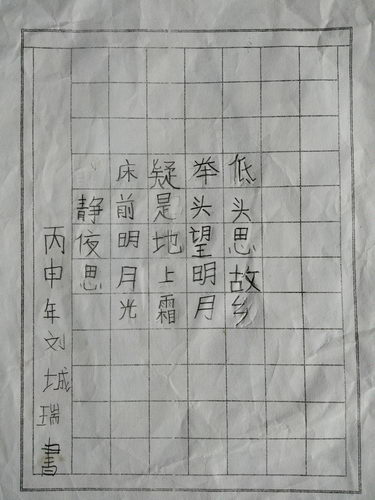 静夜思
床前明月光
疑是地上霜
举头望明月
低头思故乡
丙申年刘城瑞書